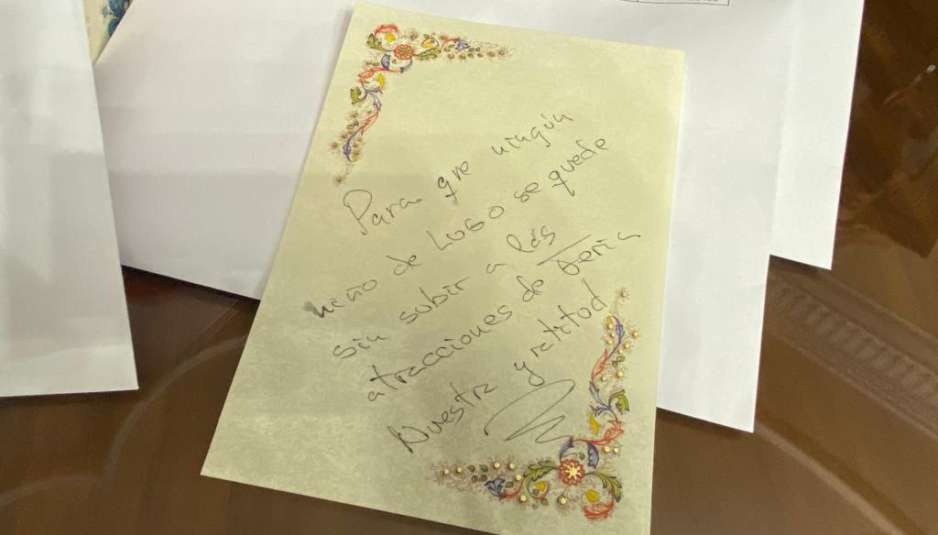 Para que ningún
niño de LUGO se quede
sin subir a las
atracciones de Feria
Nuestra gratitud